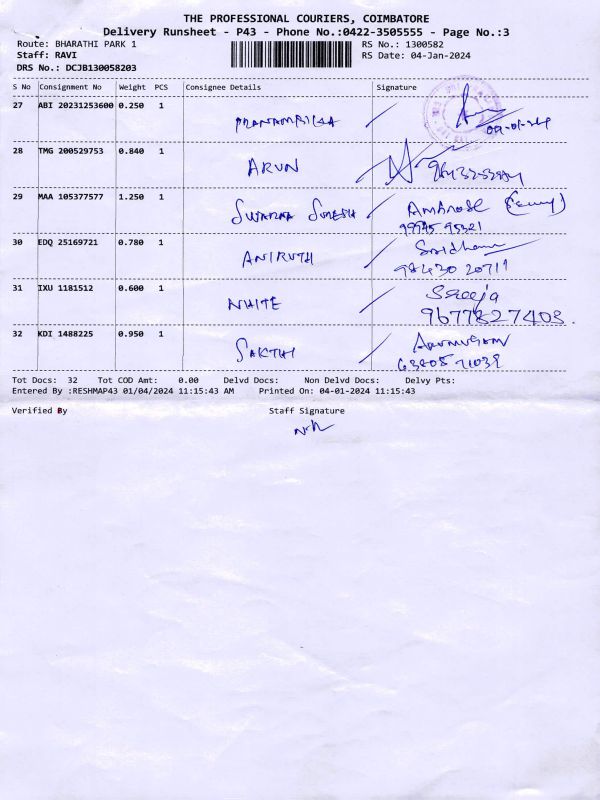 THE PROFESSIONAL COURIERS, COIMBATORE
Delivery Runsheet - P43 - Phone No.:0422-3505555 - Page No.:3
Route: BHARATHI PARK 1 RS No.: 1300582
Staff: RAVI RS Date: 04-Jan-2024
DRS No.: DCJB130058203
S No Consignment No Weight PCS Consignee Details Signature
27 ABI 20231253600 0.250 1
28 TMG 200529753 0.840 1 ARUN
29 MAA 105377577 1.250 1 SWARNA SURESH AMBROSE
99945 95321
30 EDQ 25169721 0.780 1 ANIRUTH Sridhar
98430 20711
31 IXU 1181512 0.600 1 NHITE Sreeja
9677827408.
32 KDI 1488225 0.950 1 SAKTHI Arumugam
63805 71039
Tot Docs: 32 Tot COD Amt: 0.00 Delvd Docs: Non Delvd Docs: Delvy Pts:
Entered By :RESHMAP43 01/04/2024 11:15:43 AM Printed On: 04-01-2024 11:15:43
Verified By Staff Signature